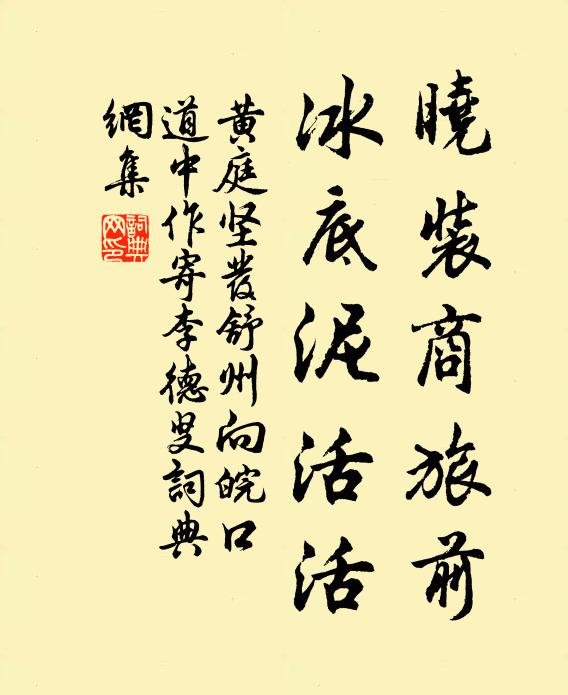 曉裝商旅前
冰底泥活活
黄庭坚發舒州向皖口
道中作寄李德叟詞典
網集
詞典
网印